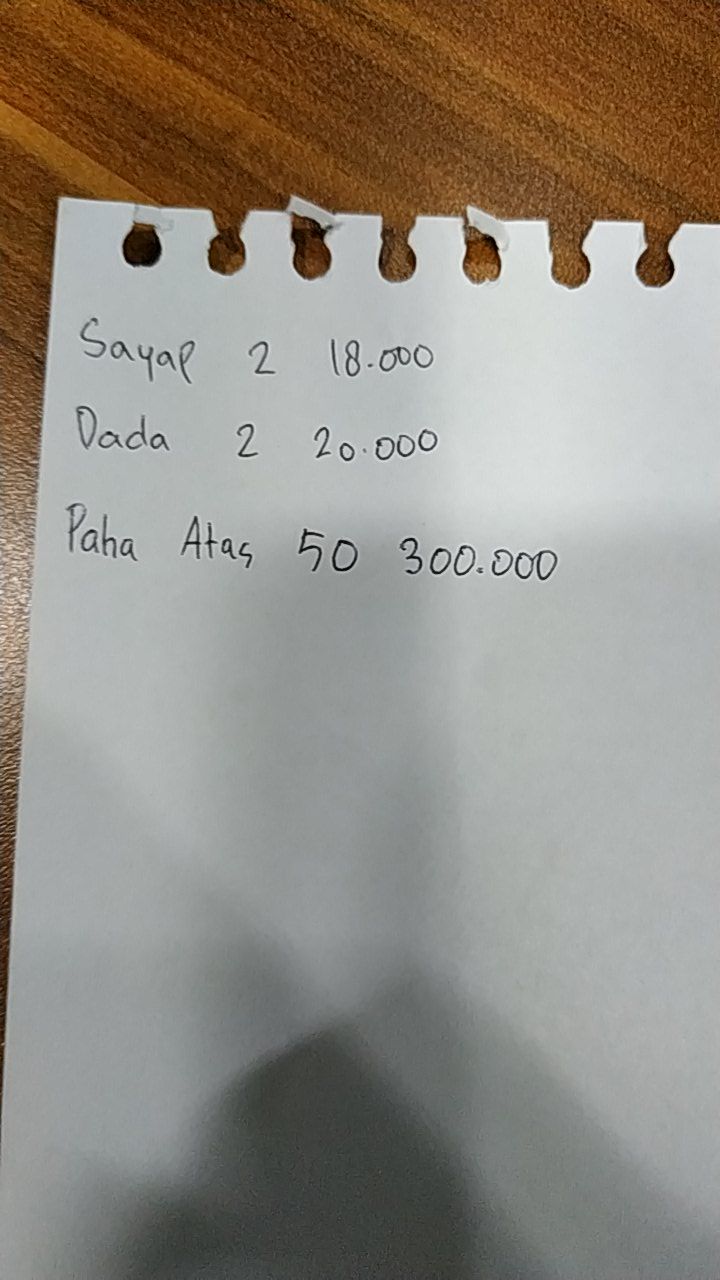 Sayap 2 18.000
Dada 2 20.000
Paha Atas 50 300.000